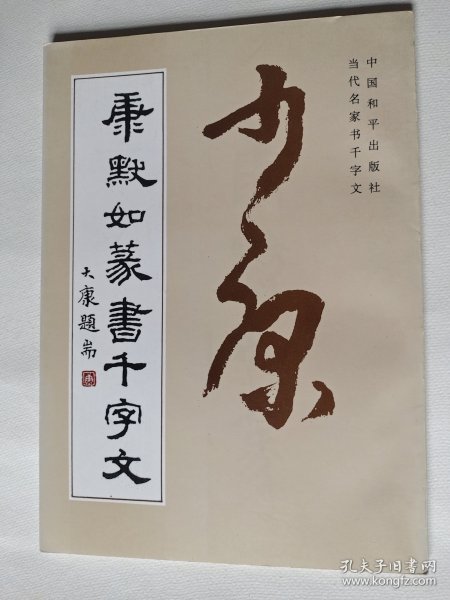 中国和平出版社
当代名家书千字文
康默如篆書千字文
大康題耑
孔夫子旧书网
www.kongfz.com